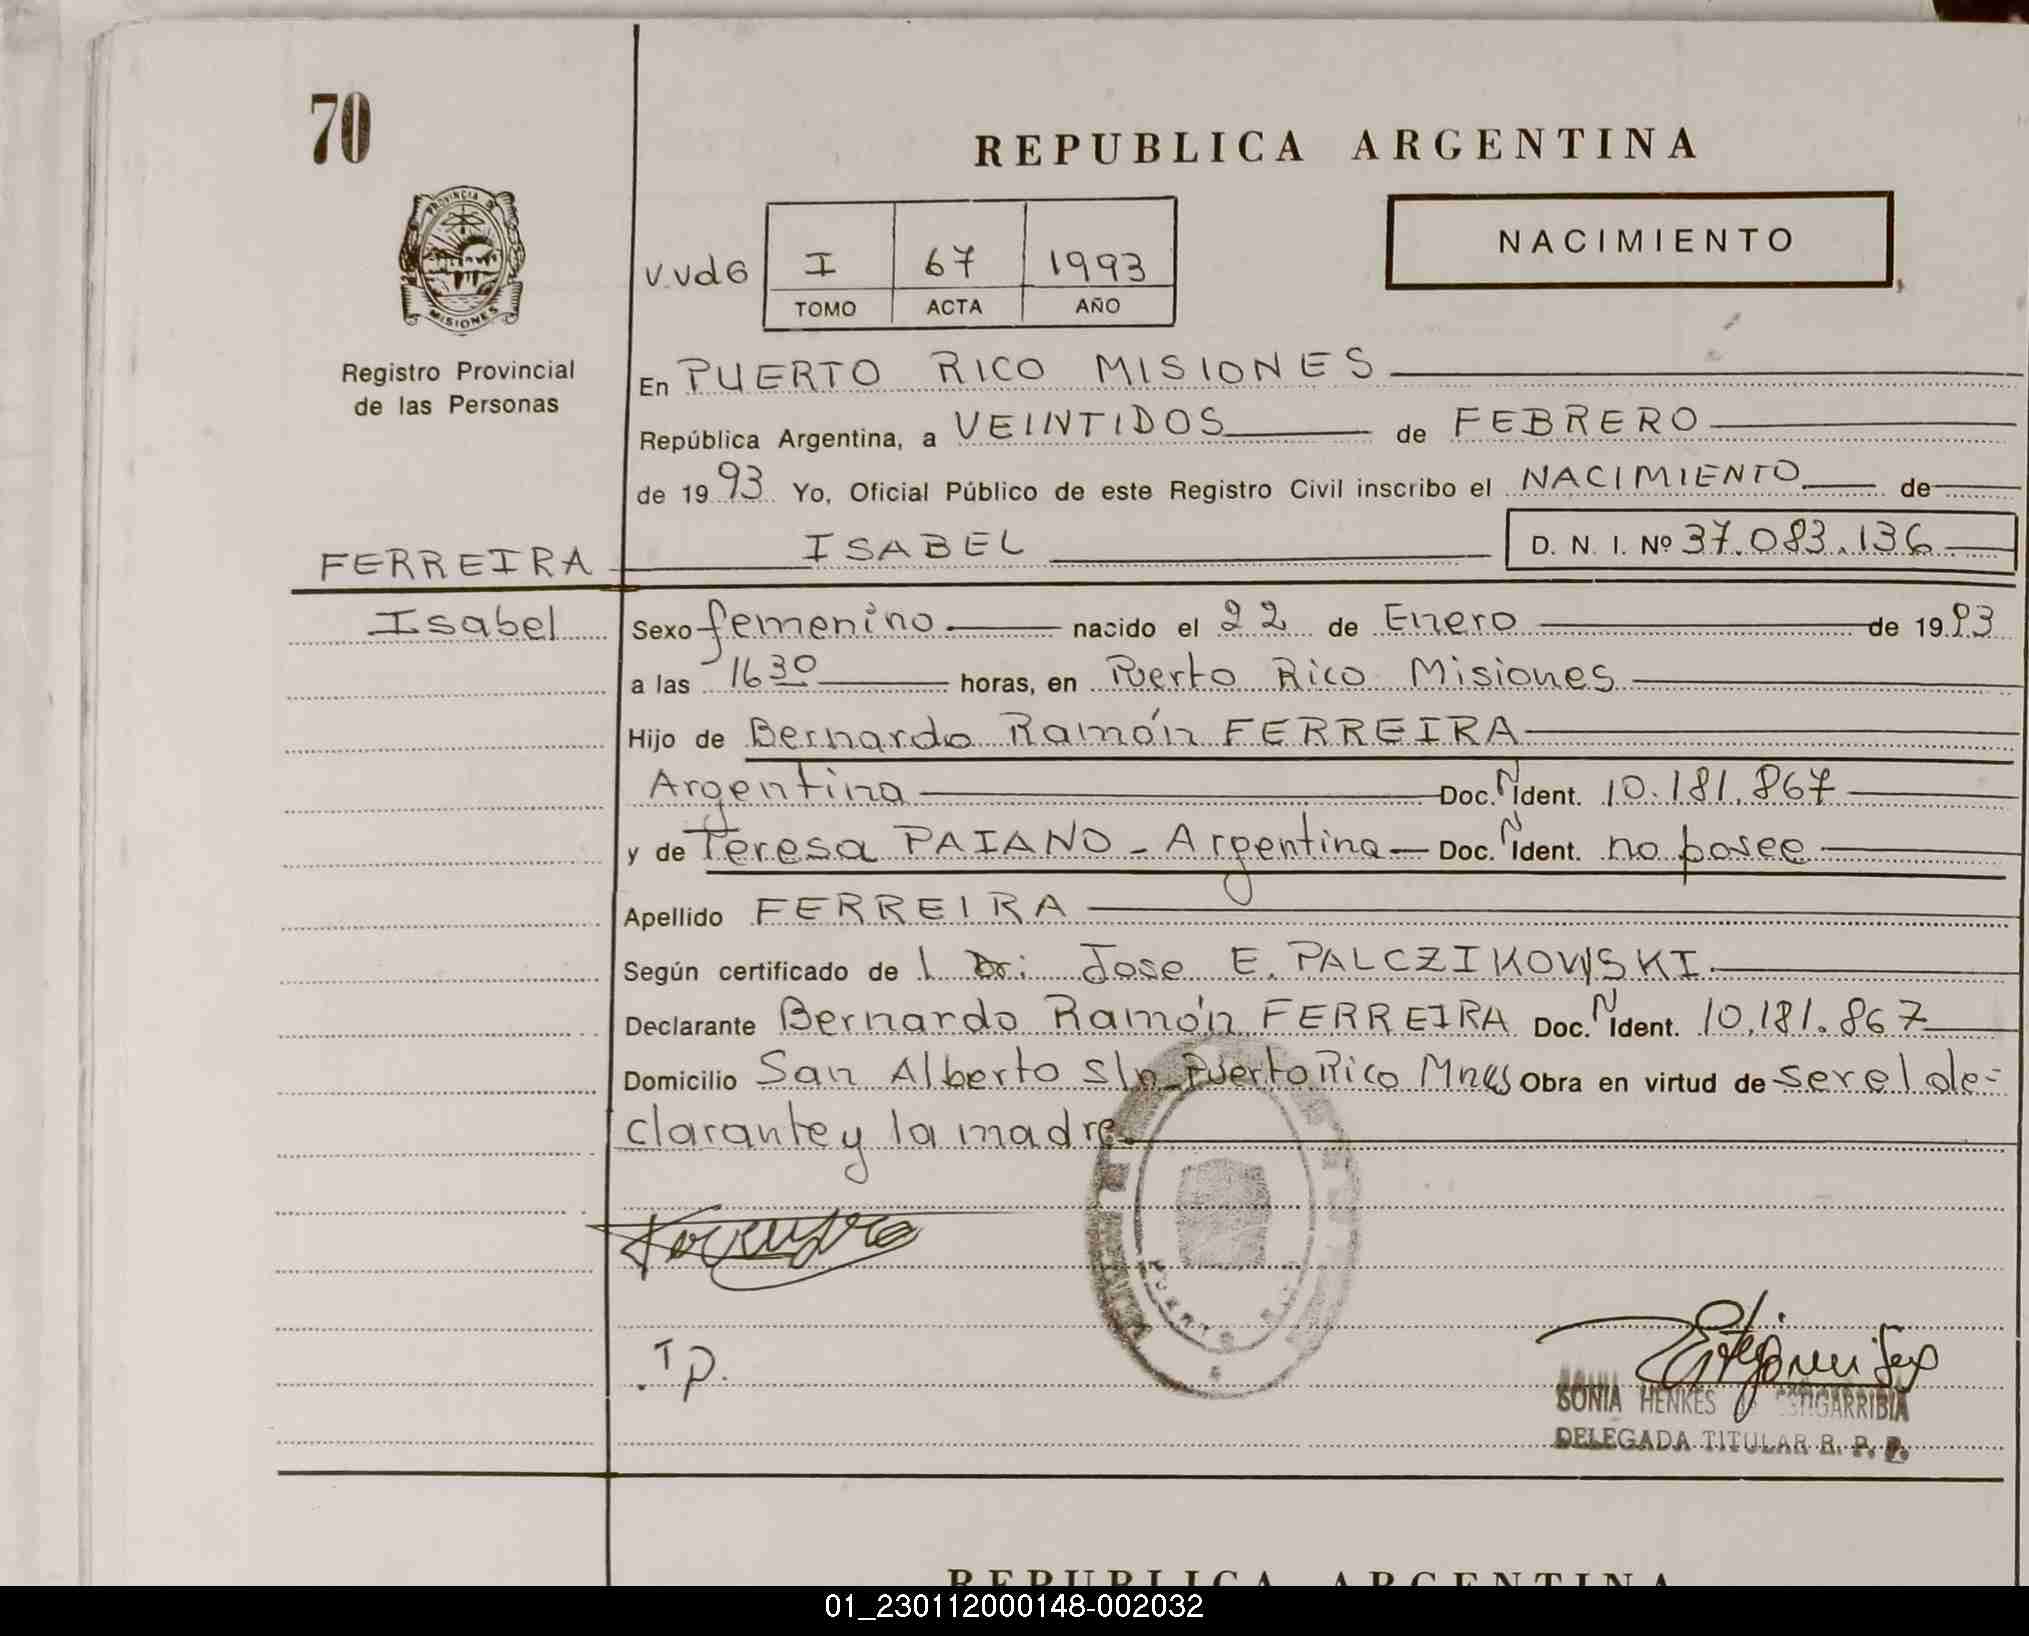 70
REPUBLICA ARGENTINA
PROVINCIA DE
MISIONES
Registro Provincial
de las Personas
V.Vd6
I 67 1993
TOMO ACTA AÑO
NACIMIENTO
En PUERTO RICO MISIONES
República Argentina, a VEINTIDOS de FEBRERO
de 1993 Yo, Oficial Público de este Registro Civil inscribo el NACIMIENTO de
FERREIRA ISABEL D. N. I. Nº 37.083.136
Isabel
Sexo femenino nacido el 22 de Enero de 1993
a las 16 30 horas, en Puerto Rico Misiones
Hijo de Bernardo Ramón FERREIRA
Argentina Doc. N Ident. 10.181.867
y de Teresa PAIANO - Argentina Doc. N Ident. no posee
Apellido FERREIRA
Según certificado de l Dr: Jose E. PALCZIKOWSKI
Declarante Bernardo Ramón FERREIRA Doc. N Ident. 10.181.867
Domicilio San Alberto s/n Puerto Rico Mnes Obra en virtud de ser el de=
clarante y la madre
PUERTO
T P.
SONIA HENKES ESTIGARRIBIA
DELEGADA TITULAR R. P. P.
REPUBLICA ARGENTINA
01_230112000148-002032